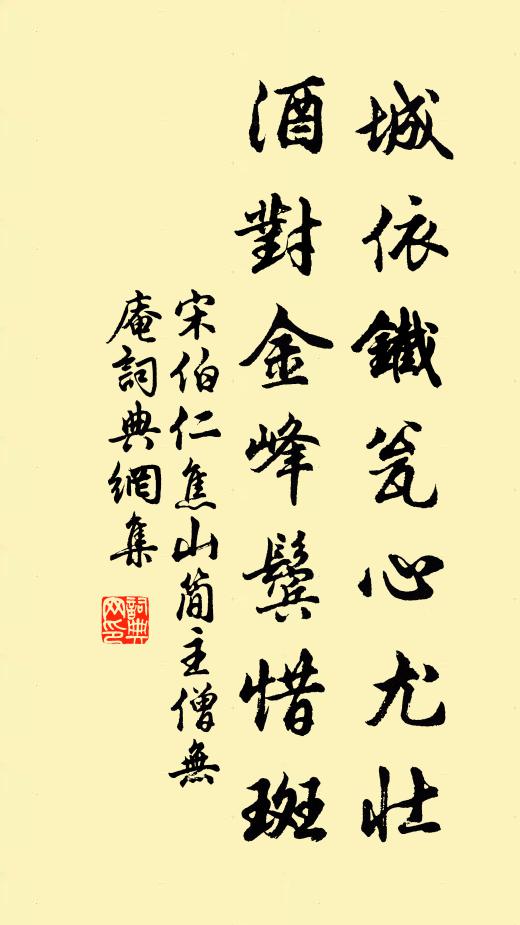 城依鐵瓮心尤壯
酒對金峰鬢惜斑
宋伯仁焦山簡主僧無
庵詞典網集
詞典
网印